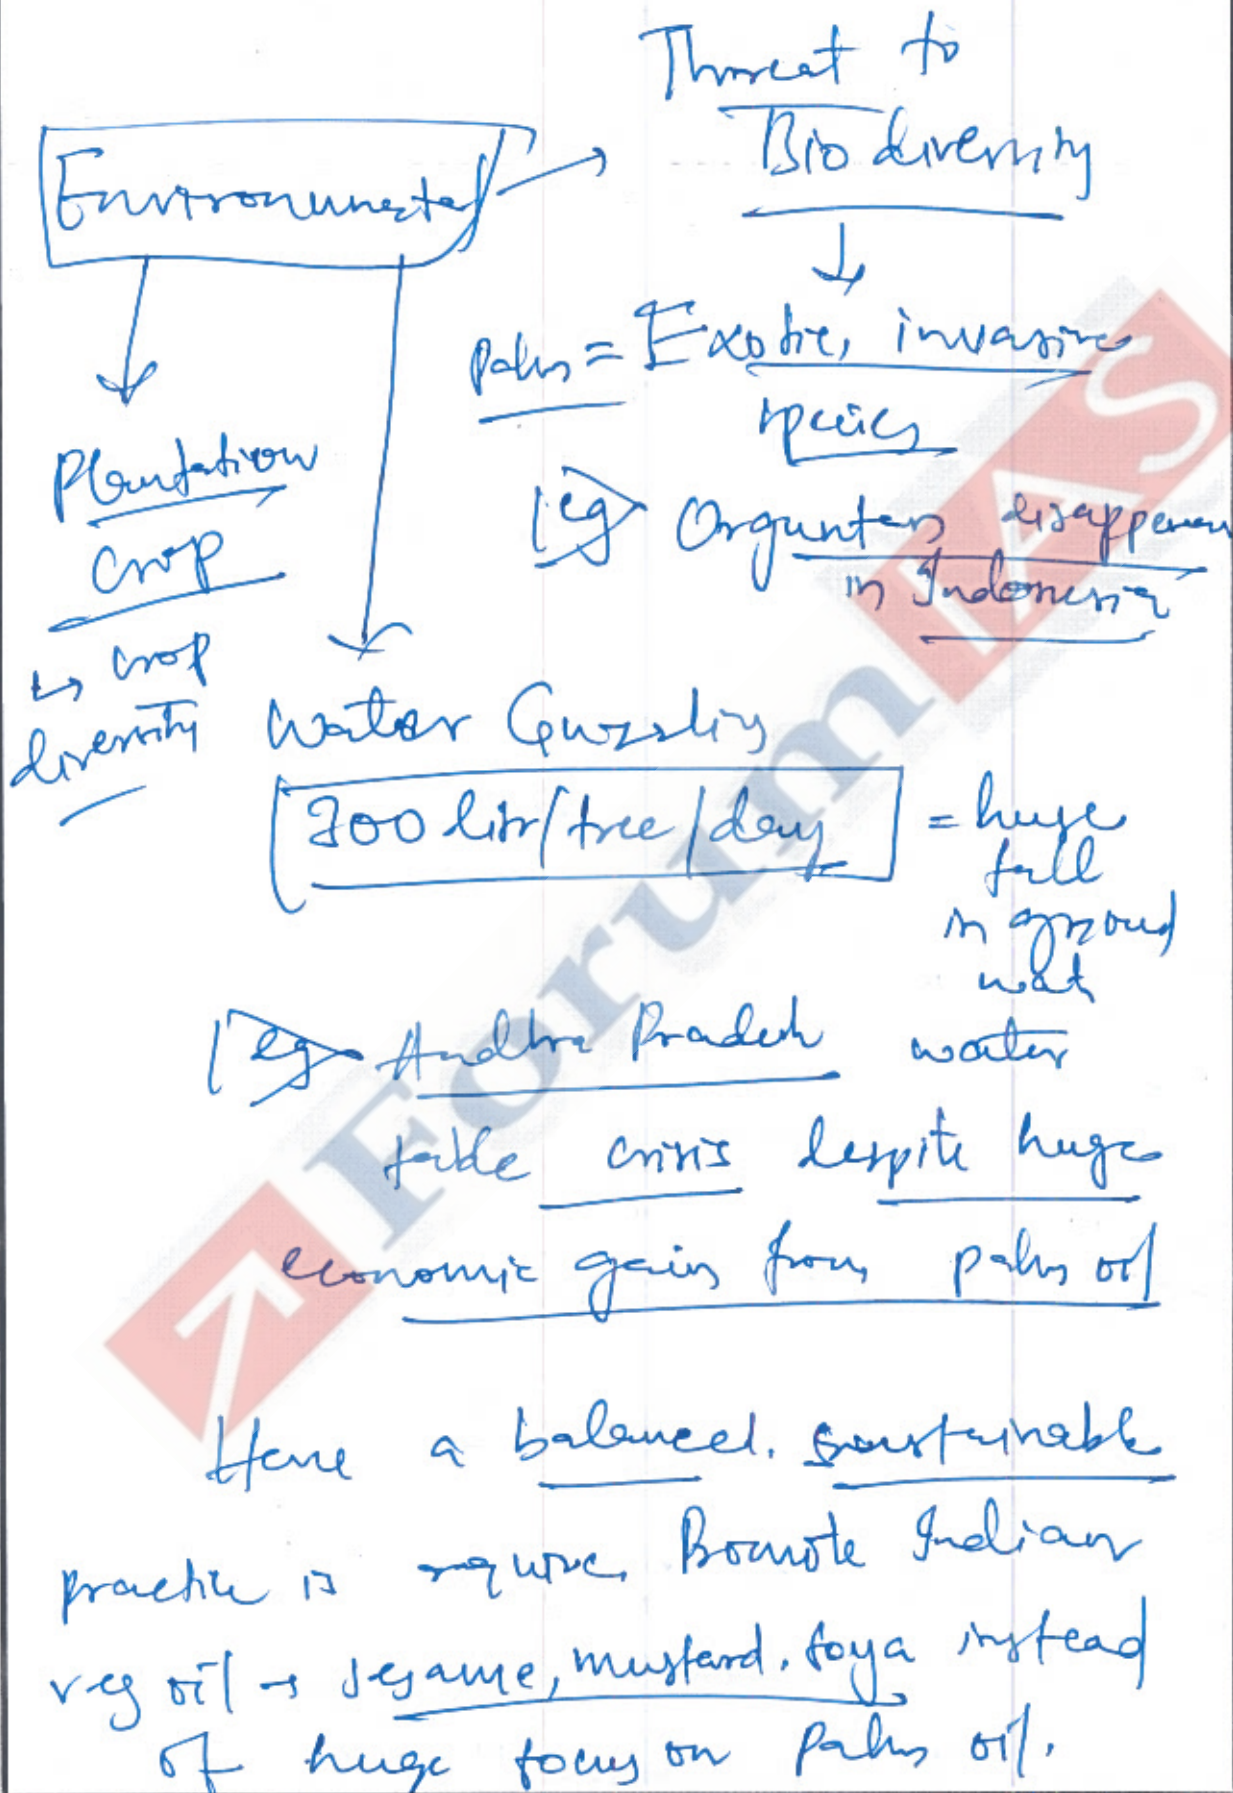 Threat to
Biodiversity
Environmental
Palm = Exotic, invasive
species
eg Orguntan disappear
in Indonesia
Plantation
Crop
↳ crop
diversity
Water Guzzling
300 litr/tree/day
= huge
fall
in ground
wat
water
eg Andhra Pradesh
table crisis despite huge
economic gain from palm oil
Hence a balanced, sustainable
practice is require. Promote Indian
veg oil → sesame, mustard, soya instead
of huge focus on palm oil.
Forum IAS